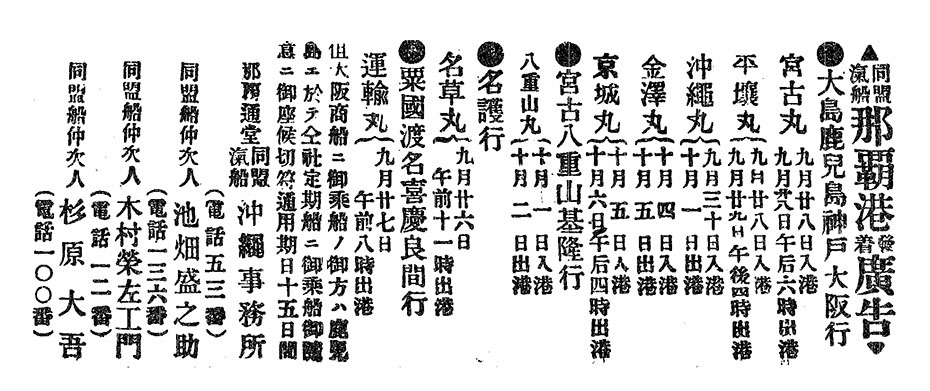 ▲同盟汽船那覇港發着廣告▼
●大島鹿兒島神戸大阪行
宮古丸 九月廿八日入港
九月廿九日午后六時出港
平壤丸 九月廿八日入港
九月廿九日午後四時出港
沖繩丸 九月三十日入港
十月一日出港
金澤丸 十月四日入港
十月五日出港
京城丸 十月五日入港
十月六日午后四時出港
●宮古八重山基隆行
八重山丸 十月一日入港
十月二日出港
●名護行
名草丸 九月廿六日
午前十一時出港
●粟國渡名喜慶良間行
運輸丸 九月廿七日
午前八時出港
但大阪商船ニ御乘船ノ御方ハ鹿兒
島エ於テ仝社定期船ニ御乘船御隨
意ニ御座候切符通用期日十五日間
那覇通堂 同盟汽船 沖繩事務所
(電話五三番)
同盟船仲次人 池畑盛之助
(電話一三六番)
同盟船仲次人 木村榮左工門
(電話一二番)
同盟船仲次人 杉原大吾
(電話一〇〇番)